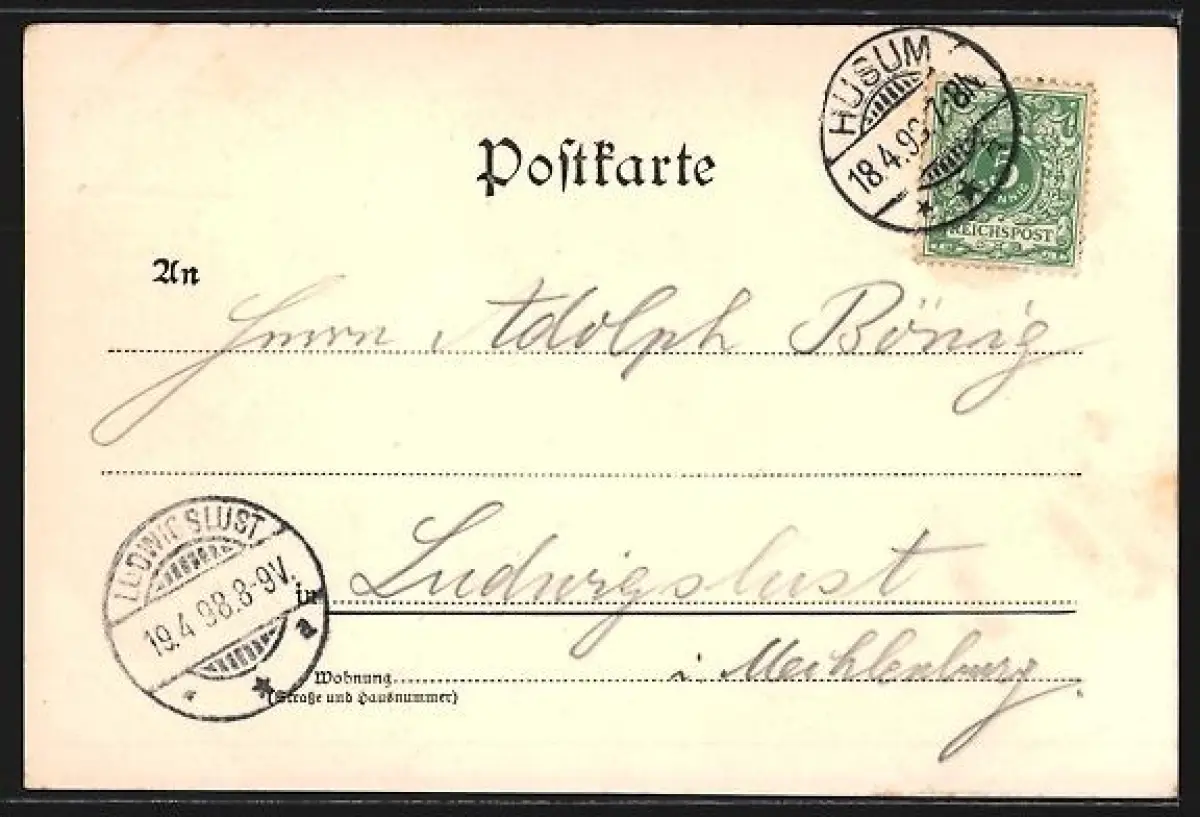 HUSUM
18.4.98 7-8N.
5
PFENNIG
REICHSPOST
Postkarte
An
Herrn Adolph Bönig
LUDWIGSLUST
19.4 98.8-9V.
a
in Ludwigslust
i. Mecklenburg
Wohnung
(Straße und Hausnummer)